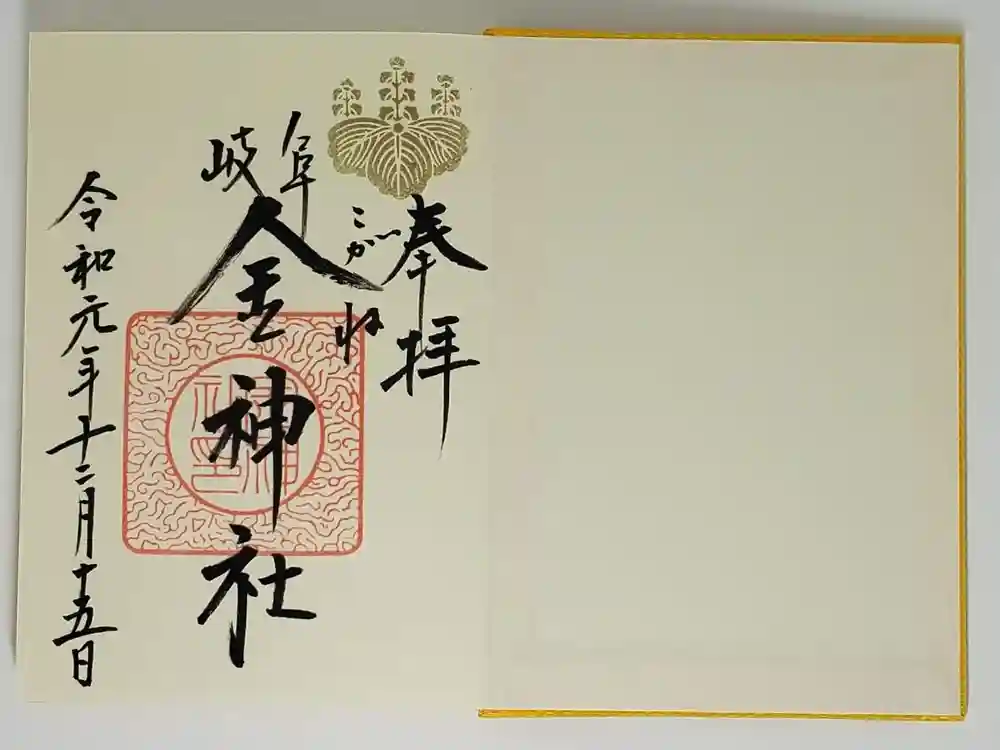 奉拝
こがね
岐阜
金神社
令和元年十二月十五日